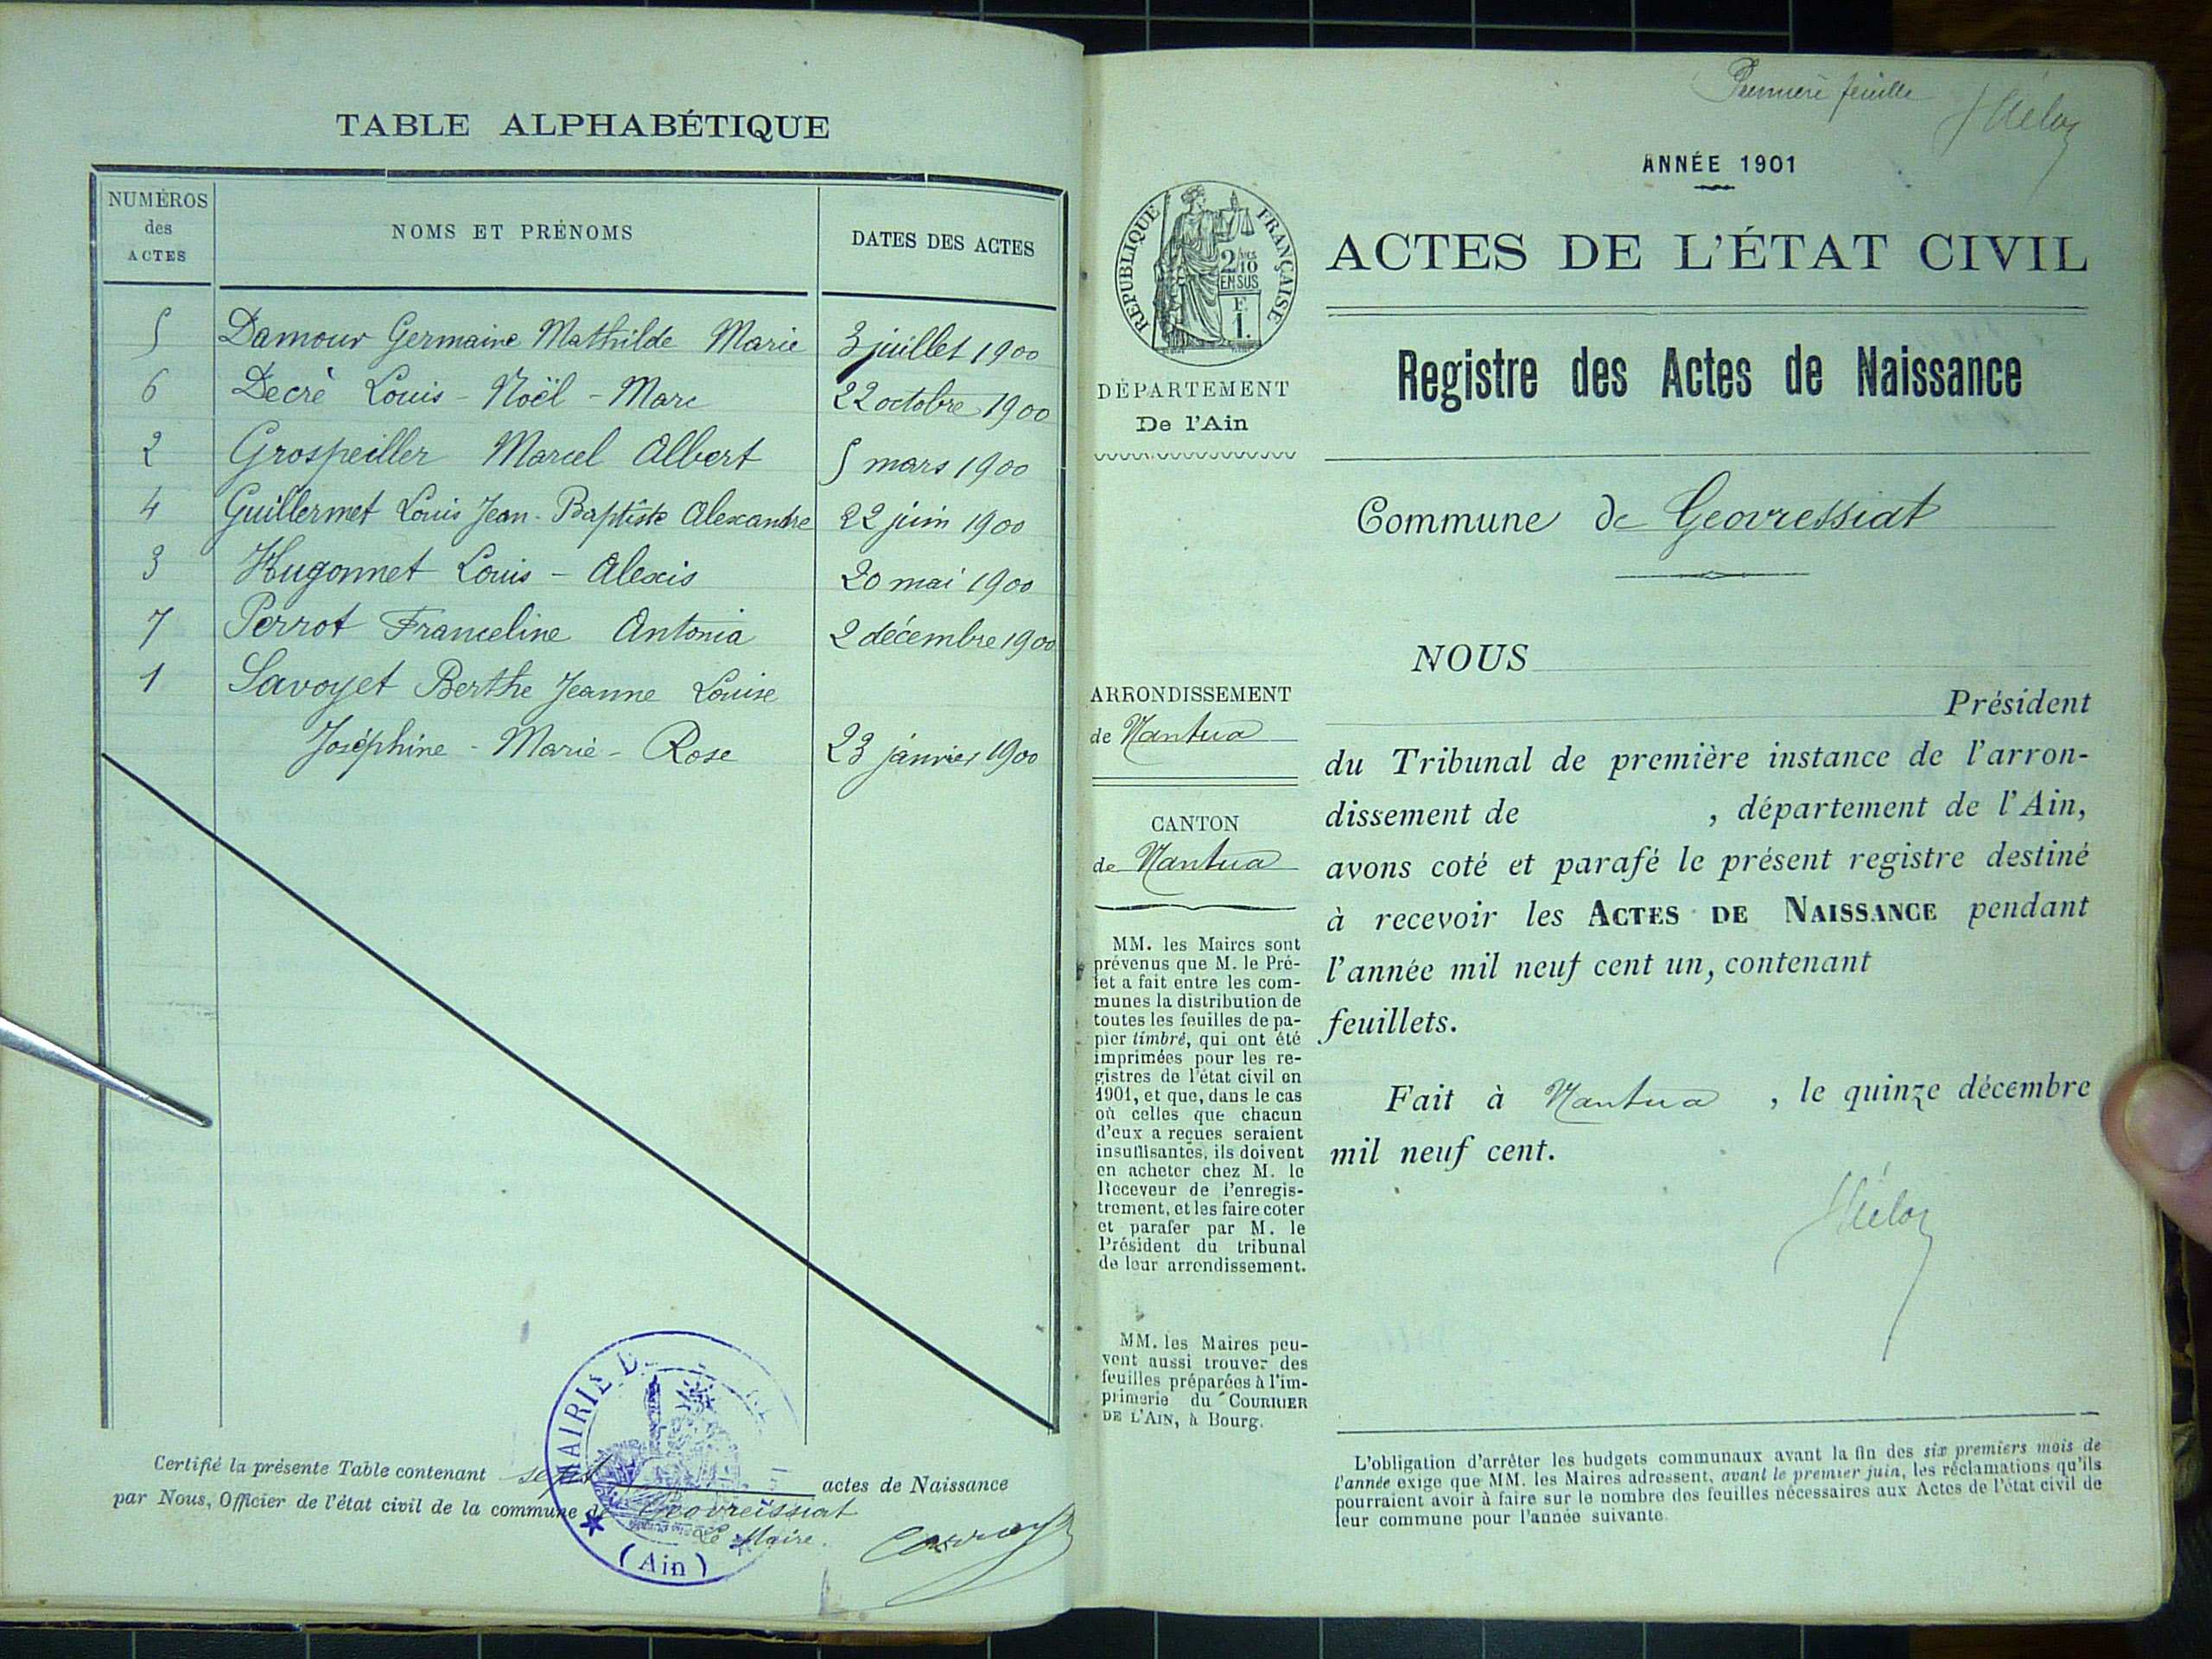 TABLE ALPHABÉTIQUE
NUMÉROS
des
ACTES
NOMS ET PRÉNOMS
DATES DES ACTES
5 Damour Germaine Mathilde Marie 3 juillet 1900
6 Decré Louis - Noël - Marc 22 octobre 1900
2 Grospeiller Marcel Albert 5 mars 1900
4 Guillermet Louis Jean-Baptiste Alexandre 22 juin 1900
3 Hugonnet Louis - Alexis 20 mai 1900
7 Perrot Franceline Antonia 2 décembre 1900
1 Savoyet Berthe Jeanne Louise
Joséphine - Marie - Rose 23 janvier 1900
Certifié la présente Table contenant sept actes de Naissance
par Nous, Officier de l'état civil de la commune de Geovreissiat
Le Maire.
MAIRIE D
(Ain)
Première feuille
ANNÉE 1901
RÉPUBLIQUE FRANÇAISE
2/10
EN SUS
F
1.
DÉPARTEMENT
De l'Ain
ACTES DE L'ÉTAT CIVIL
Registre des Actes de Naissance
Commune de Geovressiat
ARRONDISSEMENT
de Nantua
CANTON
de Nantua
MM. les Maires sont
prévenus que M. le Pré-
fet a fait entre les com-
munes la distribution de
toutes les feuilles de pa-
pier timbré, qui ont été
imprimées pour les re-
gistres de l'état civil en
1901, et que, dans le cas
où celles que chacun
d'eux a reçues seraient
insuffisantes, ils doivent
en acheter chez M. le
Receveur de l'enregis-
trement, et les faire coter
et parafer par M. le
Président du tribunal
de leur arrondissement.
MM. les Maires peu-
vent aussi trouver des
feuilles préparées à l'im-
primerie du COURRIER
DE L'AIN, à Bourg.
NOUS
Président
du Tribunal de première instance de l'arron-
dissement de , département de l'Ain,
avons coté et parafé le présent registre destiné
à recevoir les ACTES DE NAISSANCE pendant
l'année mil neuf cent un, contenant
feuillets.
Fait à Nantua , le quinze décembre
mil neuf cent.
L'obligation d'arrêter les budgets communaux avant la fin des six premiers mois de
l'année exige que MM. les Maires adressent, avant le premier juin, les réclamations qu'ils
pourraient avoir à faire sur le nombre des feuilles nécessaires aux Actes de l'état civil de
leur commune pour l'année suivante.